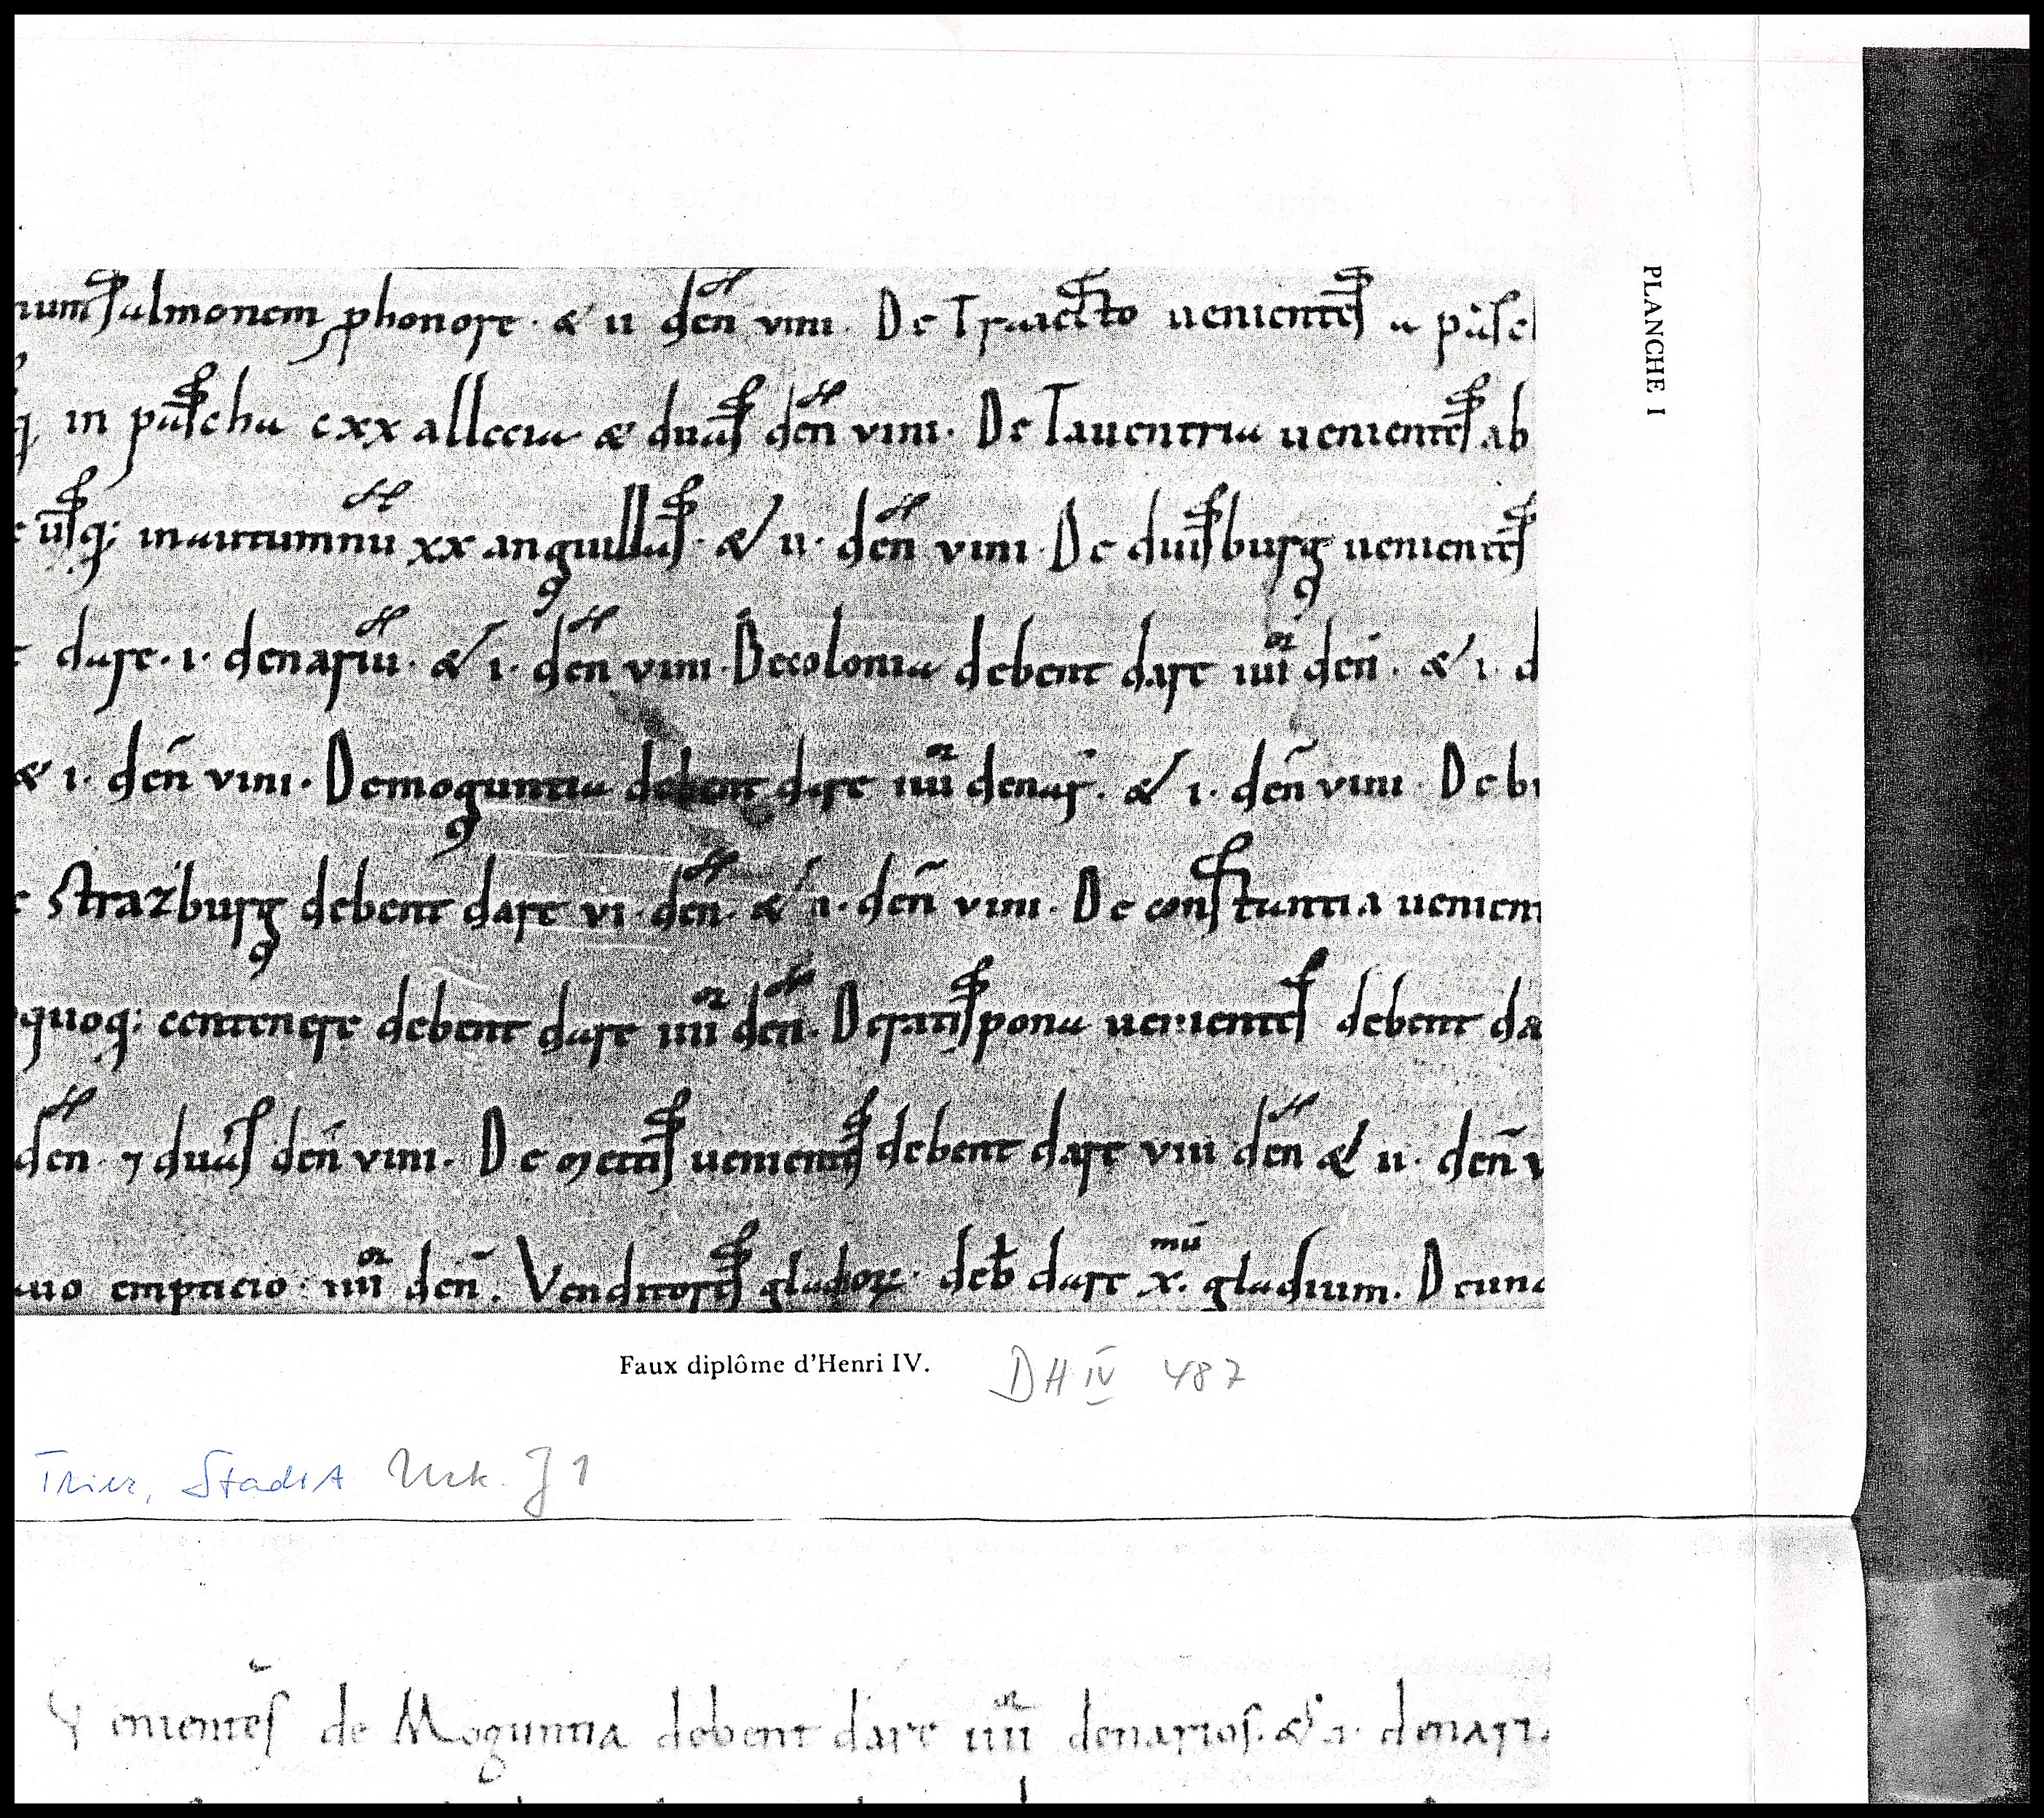 num salmonem phonore · & ii den̄ vini · De Traiecto uenientes a pasc
q, in pascha cxx allecia & duas den̄ vini · De Tauentria uenientes ab
usq; in autumnū xx anguillas · & ii · den̄ vini · De duisburg uenientes
dare · i · denariū · & i · den̄ vini · De colonia debent dare iiii den̄ · & i · d
& i · den̄ vini · De moguntia debent dare iiii denar̄ · & i · den̄ vini · De bi
Strazburg debent dare vi · den̄ · & i · den̄ vini · De constantia uenien
quoq; centenere debent dare iiii den̄ · De ratispona uenientes debent da
den̄ · ⁊ duas den̄ vini · De mettis uenientes debent dare viii den̄ & ii · den̄ v
uo empticio · iiii den̄ · Venditores gladioꝝ · deb̄ dare x.mū gladium. De una
PLANCHE I
Faux diplôme d'Henri IV. DH IV 487
Trier, StadtA Urk. J 1
Venientes de Moguntia debent dare iiii denarios · & i · denari